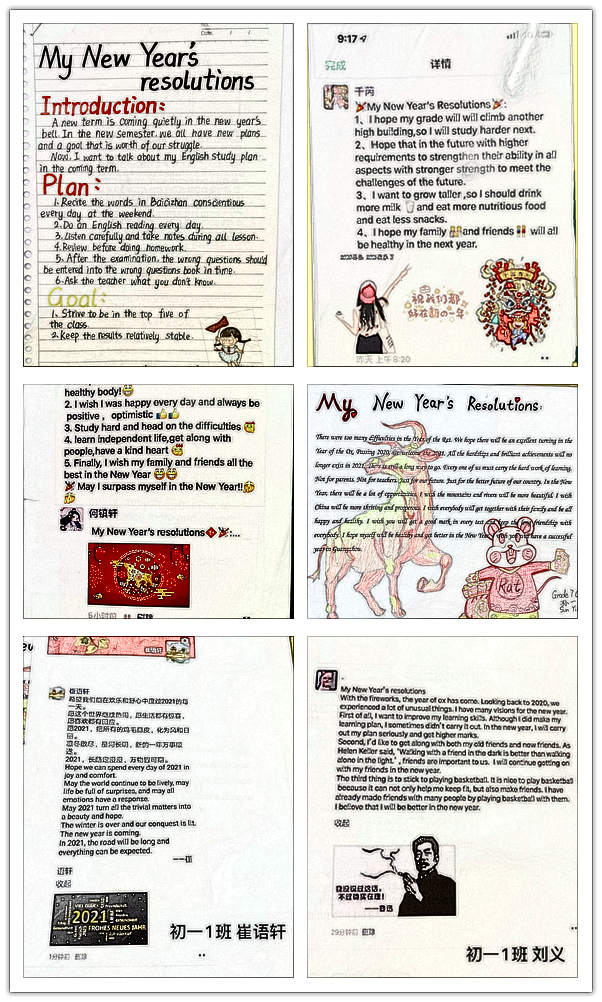 My New Year's
resolutions
Introduction:
A new term is coming quietly in the new year's
bell. In the new semester, we all have new plans
and a goal that is worth of our struggle.
Now, I want to talk about my English study plan
in the coming term.
Plan:
1. Recite the words in Baicizhan conscientious
every day at the weekend.
2. Do an English reading every day.
3. Listen carefully and take notes during all lesson.
4. Review before doing homework.
5. After the examination, the wrong questions should
be entered into the wrong questions book in time.
6. Ask the teacher what you don't know.
Goal:
1. Strive to be in the top five of
the class.
2. Keep the results relatively stable.
9:17
完成 详情
千芮
My New Year's Resolutions:
1、I hope my grade will will climb another
high building,so I will study harder next.
2、Hope that in the future with higher
requirements to strengthen their ability in all
aspects with stronger strength to meet the
challenges of the future.
3、I want to grow taller ,so I should drink
more milk and eat more nutritious food
and eat less snacks.
4、I hope my family and friends will all
be healthy in the next year.
祝我们都
好在新的一年
昨天 上午8:20
healthy body!
2. I wish I was happy every day and always be
positive , optimistic
3. Study hard and head on the difficulties
4. learn independent life,get along with
people,have a kind heart
5. Finally, I wish my family and friends all the
best in the New Year
May I surpass myself in the New Year!!
何镇轩
My New Year's resolutions:...
5小时前 删除
My New Year's Resolutions:
There were too many difficulties in the Year of the Rat. We hope there will be an excellent turning in the
Year of the Ox. Passing 2020, we welcome the 2021. All the hardships and brilliant achievements will no
longer exist in 2021. There is still a long way to go. Every one of us must carry the hard work of learning.
Not for parents. Not for teachers. Just for our future. Just for the better future of our country. In the New
Year, there will be a lot of opportunities. I wish the mountains and rivers will be more beautiful. I wish
China will be more thriving and prosperous. I wish everybody will get together with their family and be all
happy and healthy. I wish you will get a good mark in every test. keep the friendship with
everybody. I hope myself will be healthy and get better in the New Year. I wish you have a successful
year in Guangzhou.
Rat
Grade 7
初一
Sun
崔语轩
崔语轩
希望我们都在欢乐和舒心中度过2021的每
一天。
愿这个世界继续热闹，愿生活都有惊喜，
愿喜欢都有回应。
愿2021，把所有的鸡毛蒜皮，化为风和日
丽。
凛冬散尽，星河长明，新的一年万事顺
遂。
2021，长路漫漫，万物皆可期。
Hope we can spend every day of 2021 in
joy and comfort.
May the world continue to be lively, may
life be full of surprises, and may all
emotions have a response.
May 2021 turn all the trivial matters into
a beauty and hope.
The winter is over and our conquest is lit.
The new year is coming.
In 2021, the road will be long and
everything can be expected.
收起
VIEL GLÜCK
2021
FROHES NEUES JAHR
1分钟前 删除
初一1班 崔语轩
My New Year's resolutions
With the fireworks, the year of ox has come. Looking back to 2020, we
experienced a lot of unusual things. I have many visions for the new year.
First of all, I want to improve my learning skills. Although I did make my
learning plan, I sometimes didn't carry it out. In the new year, I will carry
out my plan seriously and get higher marks.
Second, I'd like to get along with both my old friends and now friends. As
Helen Keller said, 'Walking with a friend in the dark is better than walking
alone in the light.' , friends are important to us. I will continue getting on
with my friends in the new year.
The third thing is to stick to playing basketball. It is nice to play basketball
because it can not only help me keep fit, but also make friends. I have
already made friends with many people by playing basketball with them.
I believe that I will be better in the new year.
收起
我没说过这话，
不过确实在理！
——鲁迅
29分钟前 删除
初一1班 刘义